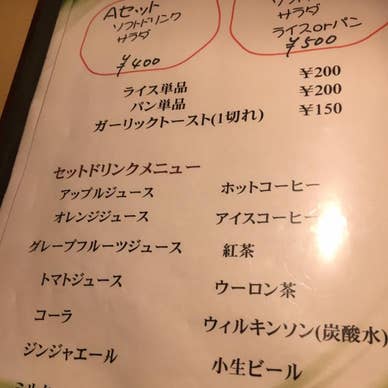 Aセット
ソフトドリンク
サラダ
¥400
ソフトドリンク
サラダ
ライスorパン
¥500
ライス単品 ¥200
パン単品 ¥200
ガーリックトースト(1切れ) ¥150
セットドリンクメニュー
アップルジュース ホットコーヒー
オレンジジュース アイスコーヒー
グレープフルーツジュース 紅茶
トマトジュース ウーロン茶
コーラ ウィルキンソン(炭酸水)
ジンジャエール 小生ビール